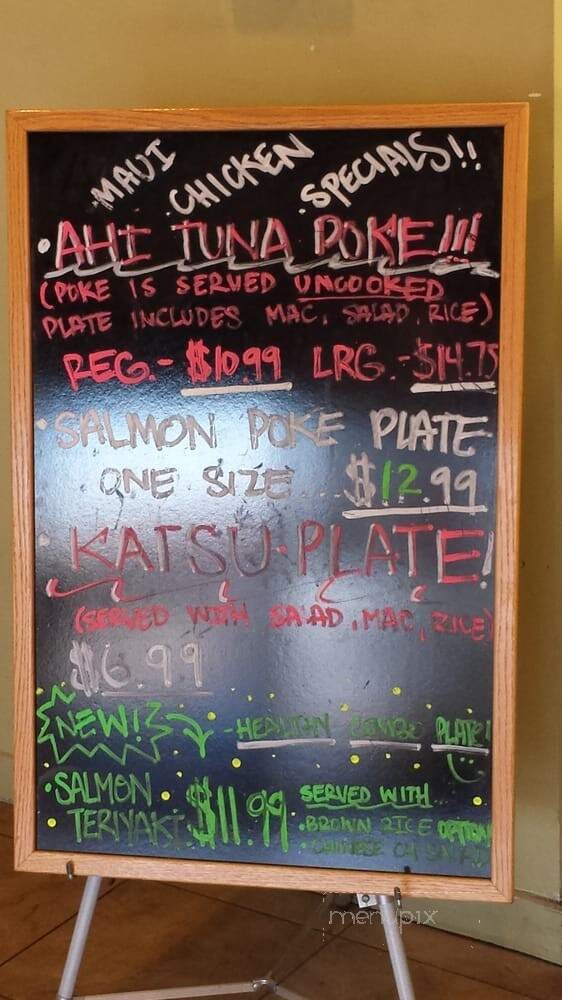 MAUI CHICKEN SPECIALS!!
• AHI TUNA POKE!!!
(POKE IS SERVED UNCOOKED
PLATE INCLUDES MAC, SALAD, RICE)
REG.- $10.99 LRG.- $14.75
• SALMON POKE PLATE
ONE SIZE... $12.99
• KATSU•PLATE!
(SERVED WITH SALAD, MAC, RICE)
$6.99
NEW! - HEALTHY COMBO PLATE!
• SALMON TERIYAKI $11.99
SERVED WITH...
• BROWN RICE OPTION
• CHINESE CH SALAD
menupix